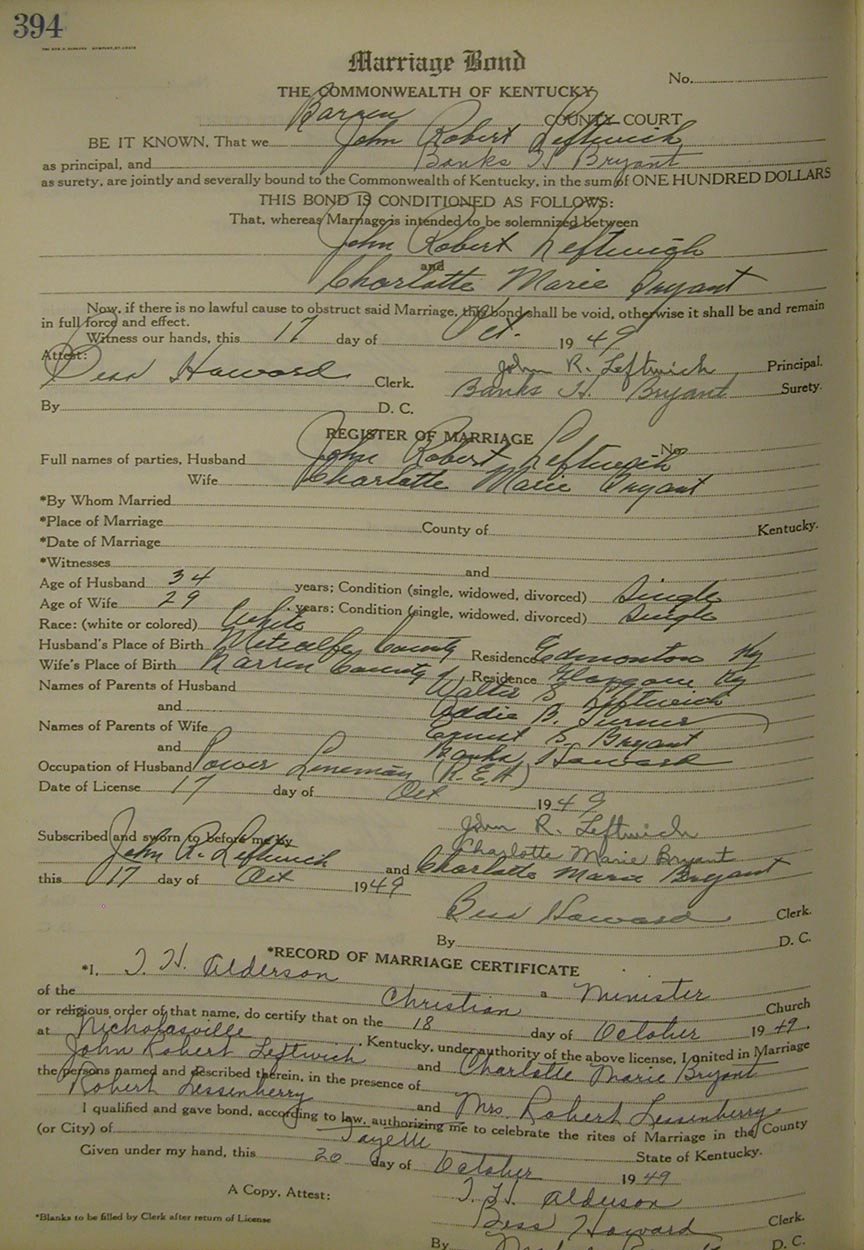 394
Marriage Bond
No.
THE COMMONWEALTH OF KENTUCKY
Barren COUNTY COURT
BE IT KNOWN, That we John Robert Leftwich
as principal, and Banks H Bryant
as surety, are jointly and severally bound to the Commonwealth of Kentucky, in the sum of ONE HUNDRED DOLLARS
THIS BOND IS CONDITIONED AS FOLLOWS:
That, whereas Marriage is intended to be solemnized between
John Robert Leftwich
and
Charlotte Marie Bryant
Now, if there is no lawful cause to obstruct said Marriage, this bond shall be void, otherwise it shall be and remain
in full force and effect.
Witness our hands, this 17 day of Oct. 1949
Attest: John R. Leftwich Principal.
Bess Howard Clerk. Banks H. Bryant Surety.
By D. C.
REGISTER OF MARRIAGE No.
Full names of parties, Husband John Robert Leftwich
Wife Charlotte Marie Bryant
*By Whom Married
*Place of Marriage County of Kentucky.
*Date of Marriage
*Witnesses and
Age of Husband 34 years; Condition (single, widowed, divorced) single
Age of Wife 29 years; Condition (single, widowed, divorced) single
Race: (white or colored) White
Husband's Place of Birth Metcalfe County Residence Edmonton Ky
Wife's Place of Birth Barren County Residence Glasgow Ky
Names of Parents of Husband Walter S. Leftwich
and Addie B. Turner
Names of Parents of Wife Ernest S. Bryant
and Banks Howard
Occupation of Husband Power Lineman (R.E.A)
Date of License 17 day of Oct 1949
John R. Leftwich
Subscribed and sworn to before me by Charlotte Marie Bryant
John R. Leftwich and Charlotte Marie Bryant
this 17 day of Oct 1949
Bess Howard Clerk.
By D. C.
*RECORD OF MARRIAGE CERTIFICATE
*I, T. H. Alderson a Minister
of the Christian Church
or religious order of that name, do certify that on the 18 day of October 1949.
at Nicholasville, Kentucky, under authority of the above license, I united in Marriage
John Robert Leftwich and Charlotte Marie Bryant
the persons named and described therein, in the presence of
Robert Lessenberry and Mrs. Robert Lessenberry
I qualified and gave bond, according to law, authorizing me to celebrate the rites of Marriage in the County
(or City) of Fayette State of Kentucky.
Given under my hand, this 20 day of October 1949
T. H. Alderson
A Copy, Attest: Bess Howard Clerk.
*Blanks to be filled by Clerk after return of License
By D. C.